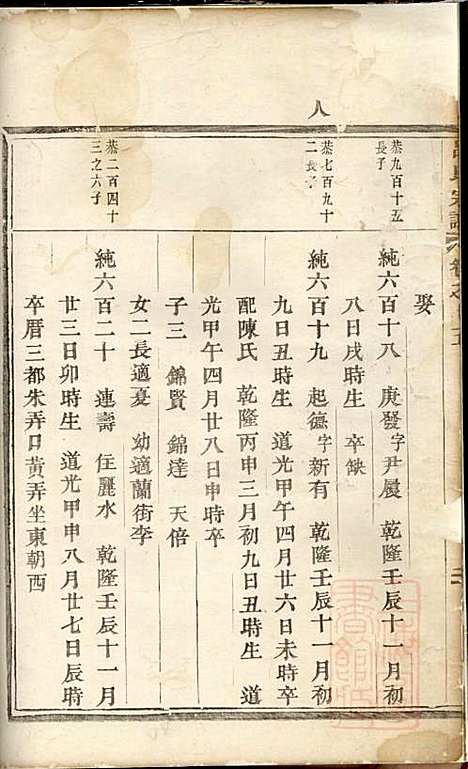 八
娶
恭九百十五
長子
純六百十八 庚發字尹屐 乾隆壬辰十一月初
八日戌時生 卒缺
恭七百九十
二長子
純六百十九 起德字新有 乾隆壬辰十一月初
九日丑時生 道光甲午四月廿六日未時卒
配陳氏 乾隆丙申三月初九日丑時生 道
光甲午四月廿八日申時卒
子三 錦賢 錦達 天倍
女二長適憂 幼適蘭街李
恭二百四十
三之六子
純六百二十 連壽 住麗水 乾隆壬辰十一月
廿三日卯時生 道光甲申八月廿七日辰時
卒厝三都朱弄口黃弄坐東朝西